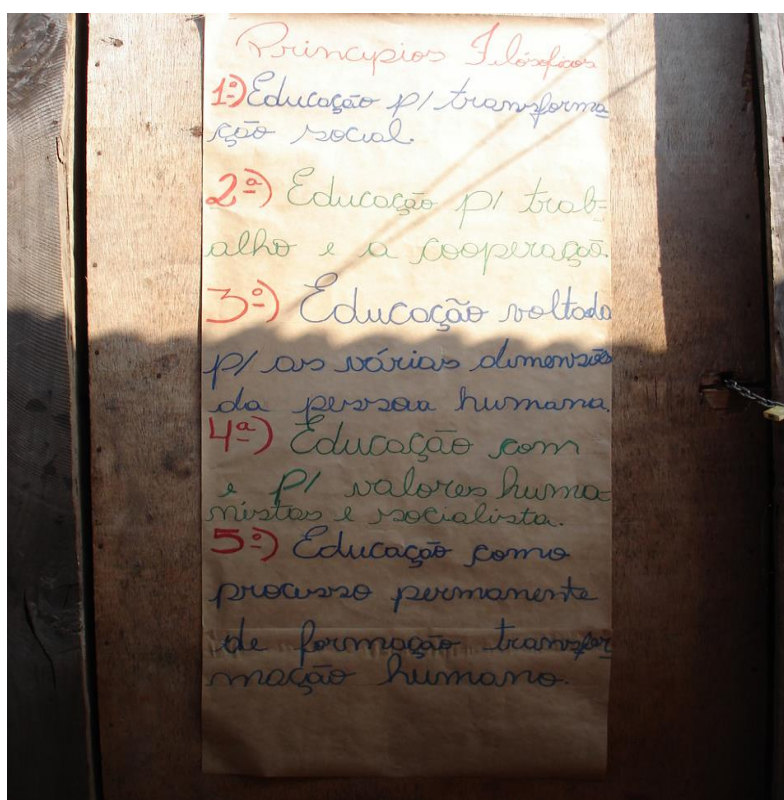 Princypios Filósoficos
1º) Educação p/ transforma
ção social.
2ª) Educação p/ trab-
alho e a cooperação.
3º) Educação voltada
p/ as várias dimensões
da pessoa humana.
4ª) Educação com
e p/ valores huma-
nistas e socialista.
5º) Educação como
processo permanente
de formação transfor
mação humano.